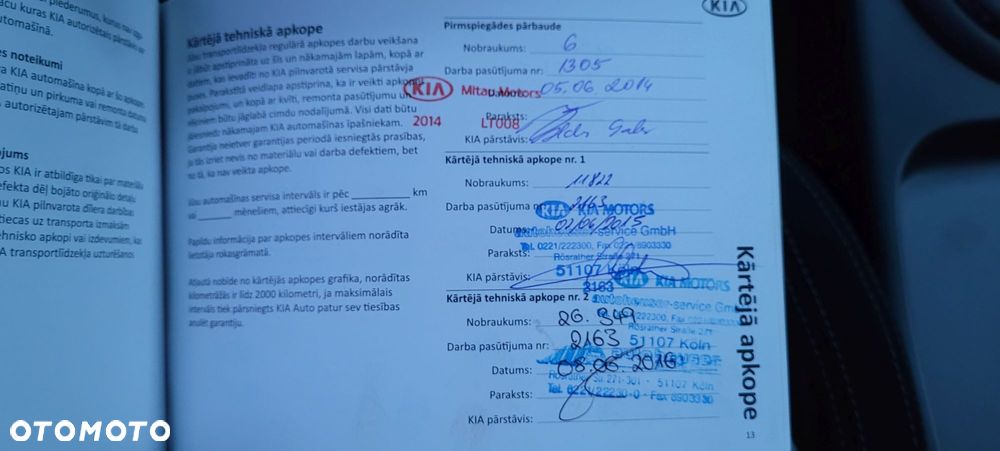 piederumus, kuras nav
kuras KIA autorizētais pārstāvis
automašīnā.
es noteikumi
KIA automašīna kopā ar šo apkopes
un pirkuma vai remonta datumu
autorizētajam pārstāvim tā darbu
ojums
KIA ir atbildīga tikai par materiālu
dēļ bojāto oriģinālo detaļu
KIA pilnvarotā dīlera darbības
uz transporta izmaksām
apkopi vai izdevumiem, kas
transportlīdzekļa uzturēšanos
Kārtējā tehniskā apkope
Jūsu transportlīdzekļa regulārā apkopes darbu veikšana
ir jābūt apstiprināta uz šīs un nākamajām lapām, kopā ar
datiem, kas ievadīti no KIA pilnvarotā servisa pārstāvja
puses. Parakstītā veidlapa apstiprina, ka ir veikti apkopes
pakalpojumi, un kopā ar kvīti, remonta pasūtījumu un
rēķiniem būtu jāglabā cimdu nodalījumā. Visi dati būtu
jāiesniedz nākamajam KIA automašīnas īpašniekam.
Garantija neietver garantijas periodā iesniegtās prasības,
ja tās izriet nevis no materiālu vai darba defektiem, bet
no tā, ka nav veikta apkope.
Jūsu automašīnas servisa intervāls ir pēc ________ km
vai ______ mēnešiem, attiecīgi kurš iestājas agrāk.
Papildu informācija par apkopes intervāliem norādīta
lietotāja rokasgrāmatā.
Atļautā nobīde no kārtējās apkopes grafika, norādītas
kilometrāžās ir līdz 2000 kilometri, ja maksimālais
intervāls tiek pārsniegts KIA Auto patur sev tiesības
anulēt garantiju.
KIA
Pirmspiegādes pārbaude
Nobraukums: 6
Darba pasūtījuma nr: 1305
KIA Mitau Motors
Datums: 05.06.2014
2014 LT008
Paraksts:
KIA pārstāvis:
Kārtējā tehniskā apkope nr. 1
Nobraukums: 11822
Darba pasūtījuma nr: 2163
KIA KIA MOTORS
Datums: 02/06/2015
autohaus-service GmbH
Tel. 0221/222300, Fax 0221/8903330
Paraksts: Rösrather Straße 271
51107 Köln
KIA pārstāvis:
2163
KIA KIA MOTORS
Kārtējā tehniskā apkope nr. 2
-service GmbH
Nobraukums: 26.949
222300, Fax 0221/8903330
Rösrather Straße 271
51107 Köln
Darba pasūtījuma nr: 2163
Datums: 08.06.2016
Rösrather Str. 271-301 - 51107 Köln
Tel. 0221/22230-0 - Fax 8903330
Paraksts:
KIA pārstāvis:
Kārtējā apkope
13
OTOMOTO